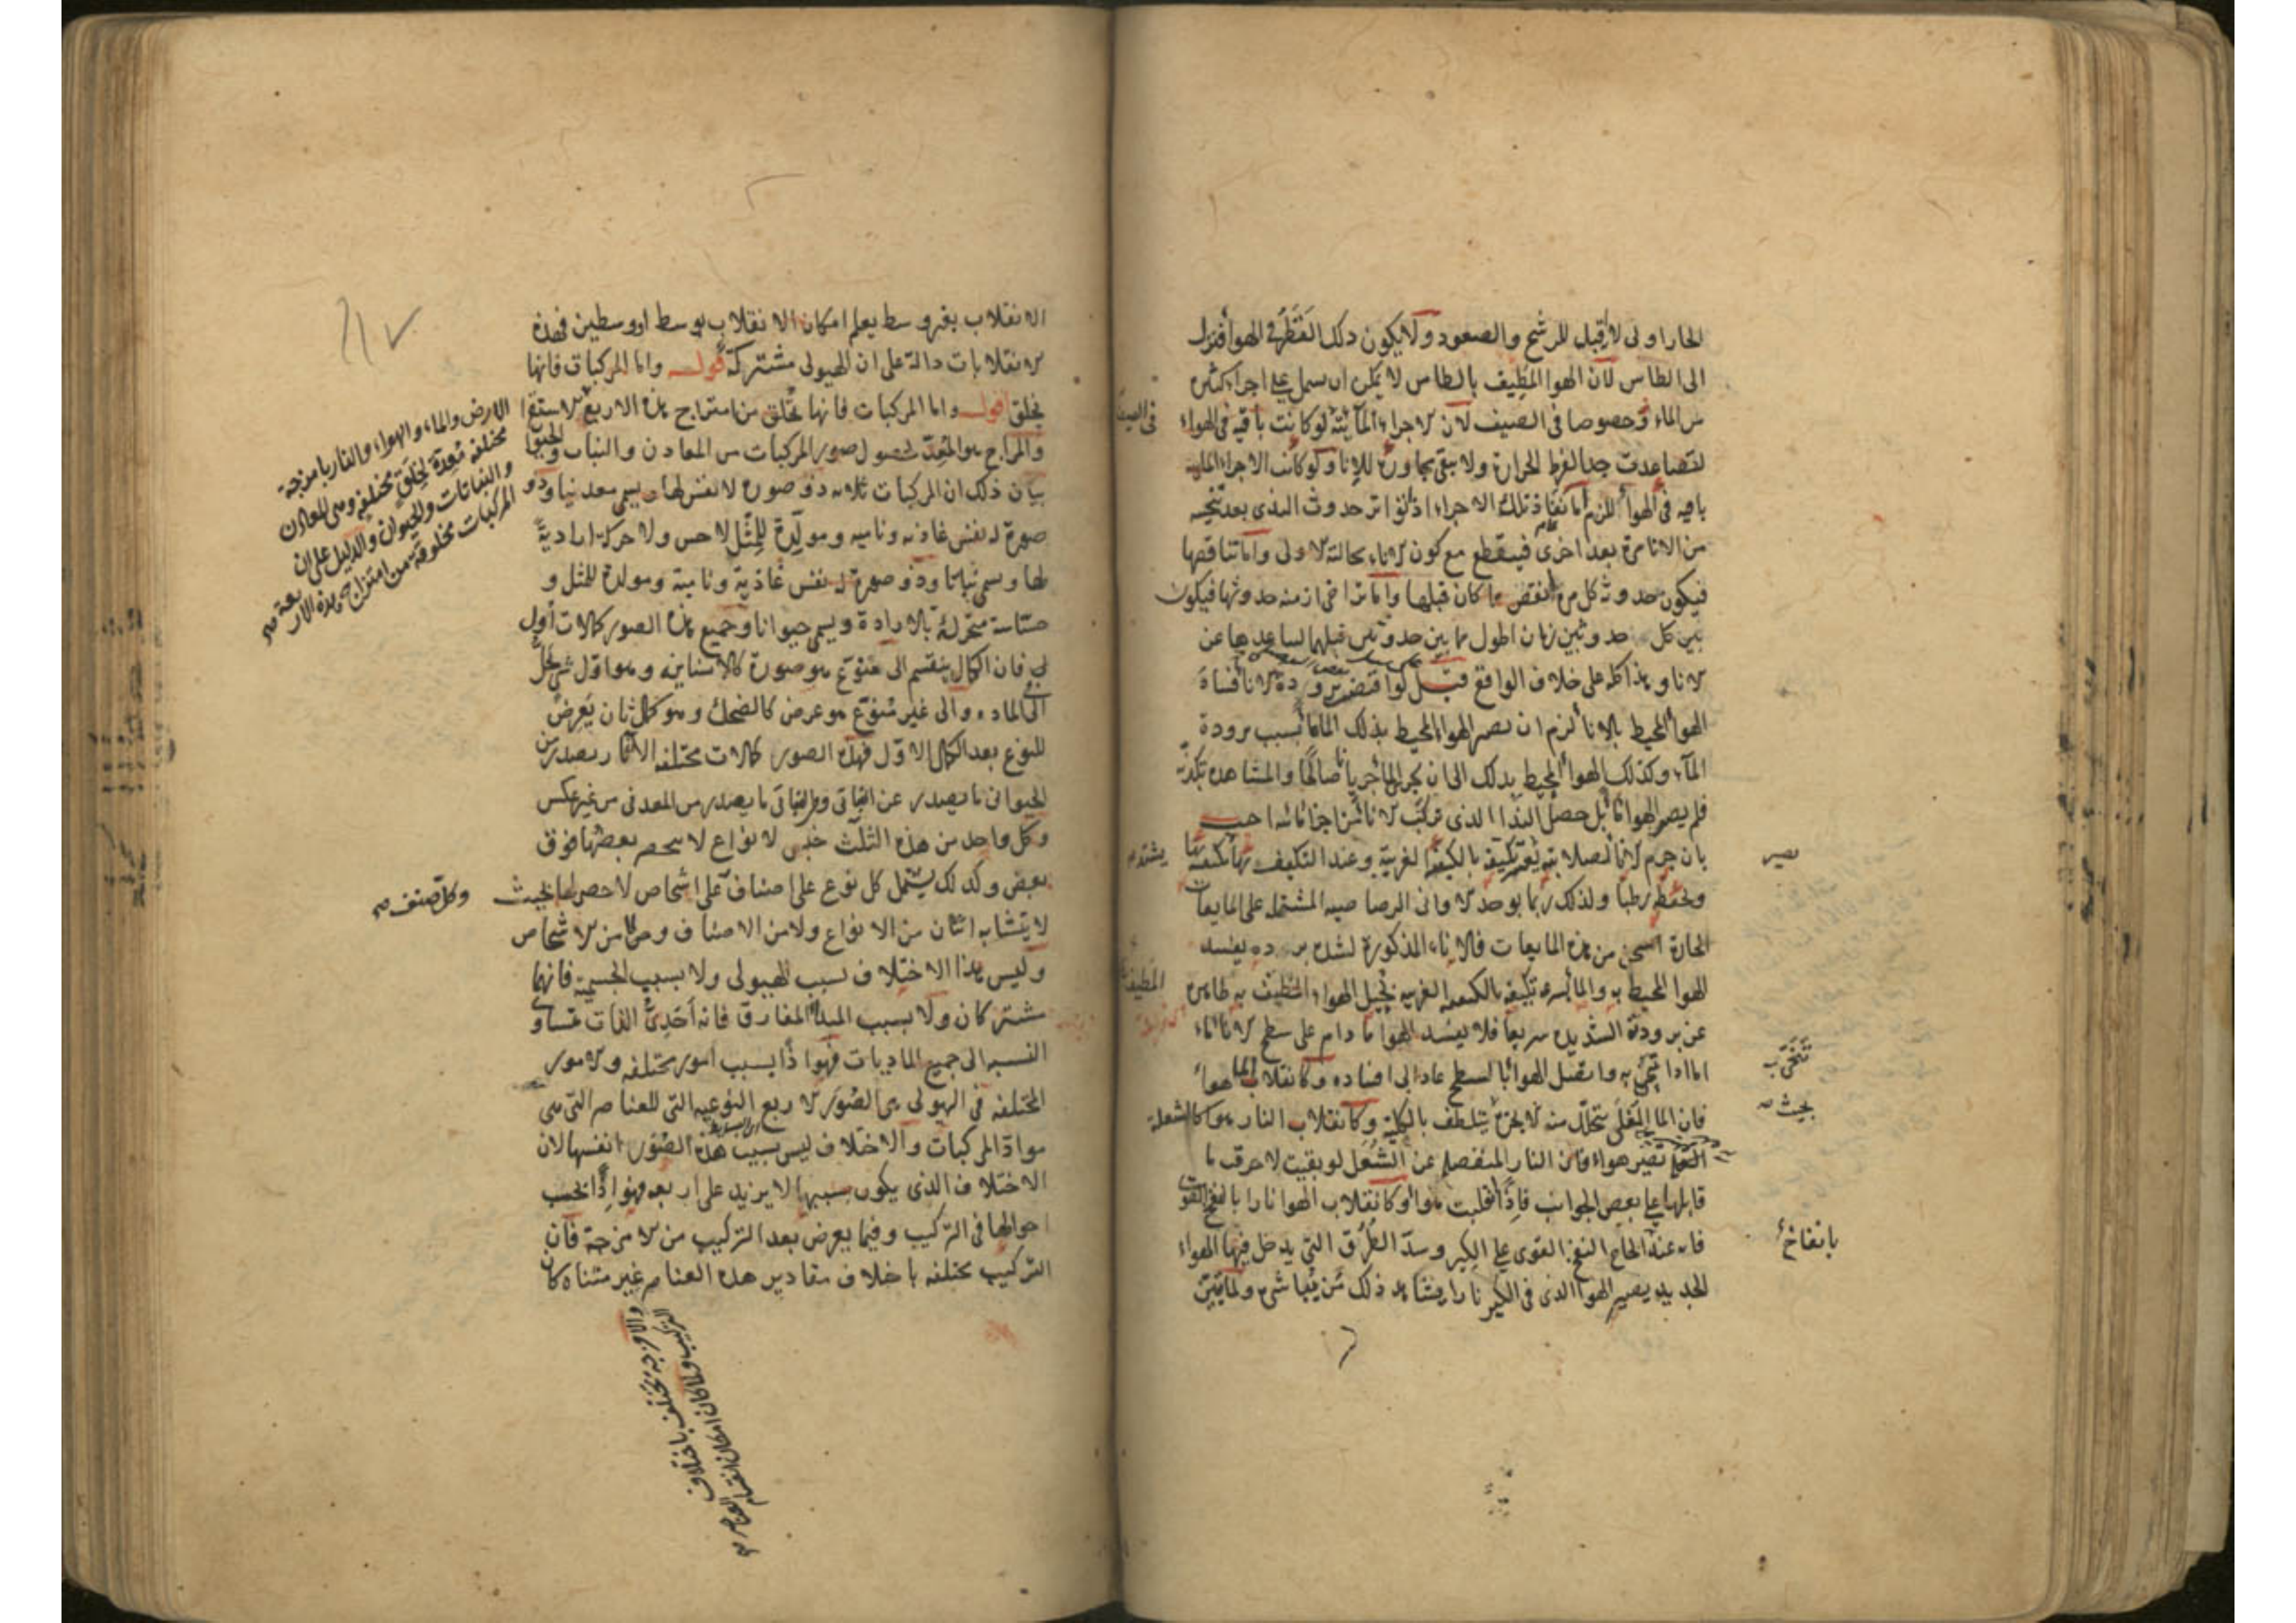 الحار اولى لانه اقبل للرشح والصعود ولا يكون ذلك القطر في الهواء فنزل
الى الطاس لان الهوا المطيف بالطاس لا يمكن ان يشتمل على اجزاء كثيرة
من الماء وخصوصا في الصيف لان الاجزاء المائية لو كانت باقية في الهواء
لتصاعدت جدا لفرط الحرارة ولا يبقى مجاورة للاناء ولو كانت الاجزاء المائية
باقية في الهوا للزم اما نفاذ تلك الاجزاء اذ تواتر حدوث الندى بعد تنحيته
من الاناء مرة بعد اخرى فينقطع مع كون الاناء بحالته الاولى واما تناقصها
فيكون حدوث كل مرة انقص مما كان قبلها واما تراخي ازمنة حدوثها فيكون
بين كل حدوثين زمان اطول مما بين حدوثين قبلهما لتباعدها عن
الانا وهذا كله على خلاف الواقع قيل لو اقتضى برودة الانا فساد
الهوا المحيط بالانا لزم ان يصير الهوا المحيط بذلك الماء ماء بسبب برودة
الماء وكذلك الهواء المحيط بذلك الى ان يجري الماء جريانا صالحا والمشاهدة تكذبه
فلم يصر الهوا ماء بل حصل الندا الذي تركب الانا من اجزا مائية اجيب
بان جرم الانا لصلابته يعسر تكيفه بالكيفية الغريبة وعند التكيف بها
وتحفظه رطبا ولذلك ربما يوجد الاواني الرصاصية المشتملة على المايعات
الحارة اسخن من هذه المايعات فالاناء المذكورة لشدة برده يفسد
الهوا المحيط به والماء لسرعة تكيفه بالكيفية الغريبة يحيل الهواء المطيف به ظاهره
عن برودته الشديدة سريعا فلا يفسد الهوا ما دام على سطح الانا ماء
اما اذا تنحى به واتصل الهوا بالسطح عاد الى افساده وكانقلاب الماء هواء
فان الماء المغلي يتحلل منه الابخرة يتلطف بالكلية وكانقلاب النار هوا كالشعلة
تصير هواء فان النار المنفصلة عن الشعل لو بقيت لاحرقت ما
قابلها على بعض الجوانب فاذا انقلبت هوا وكانقلاب الهوا نارا بالنفخ القوي
فانه عند الحاح النفخ القوي على الكير وسد الطرق التي يدخل فيها الهواء
الجديد يصير الهوا الذي في الكير نارا يشاهد ذلك من يباشره ولما تبين
في الصيف
يشتد
المطيف
يصير
بحيث
بانفاخ
الانقلاب بغير وسط يعلم امكان الانقلاب بوسط او وسطين فهذه
الانقلابات دالة على ان الهيولى مشتركة قوله واما المركبات فانها
يخلق اقول واما المركبات فانها تخلق من امتزاج هذه الاربع
والمزاج هو المعد لحصول صور المركبات من المعادن والنبات والحيوان
بيان ذلك ان المركبات ثلاثة ذو صورة لا نفس لها ويسمى معدنيا وذو
صورة له نفس غاذية ونامية ومولدة للمثل لا حس ولا حركة ارادية
لها ويسمى نباتا وذو صورة له نفس غاذية ونامية ومولدة للمثل و
حساسة متحركة بالارادة ويسمى حيوانا وجميع هذه الصور كمالات اول
فان الكمال ينقسم الى منوع هو صورة كالانسانية وهو اول شيء يحل
الى المادة والى غير منوع هو عرض كالضحك وهو كمال ثان يعرض
للنوع بعد الكمال الاول فهذه الصور كمالات مختلفة الاثار يصدر من
الحيواني ما يصدر عن النباتي ومن النباتي ما يصدر من المعدني من غير عكس
وكل واحد من هذه الثلث جنس لانواع لا ينحصر بعضها فوق
بعض وكذلك يشتمل كل نوع على اصناف على اشخاص لا حصر لها بحيث
لا يتشابه اثنان من الانواع ولا من الاصناف ولا من الاشخاص
وليس هذا الاختلاف بسبب الهيولى ولا بسبب الجسمية فانهما
مشتركان ولا بسبب المبدا المفارق فانه احدي الذات متساوي
النسبة الى جميع الماديات فهو اذا بسبب امور مختلفة والامور
المختلفة في الهيولى هي الصور الاربع النوعية التي للعناصر التي هي
مواد المركبات والاختلاف ليس بسبب هذه الصور انفسها لان
الاختلاف الذي يكون بسببها لا يزيد على اربعة فهو اذا بحسب
احوالها في التركيب وفيما يعرض بعد التركيب من الامزجة فان
التركيب يختلف باختلاف مقادير هذه العناصر غير متناه كان
الارض والماء والهواء والنار بامزجة
مختلفة معدة لخلق مختلفة وهي المعادن
والنباتات والحيوان والدليل على ان
المركبات مخلوقة من امتزاج هذه الاربعة صح
وكل صنف صح
والامزجة تختلف باختلاف
التركيب ولما كان امكان انقسام العناصر